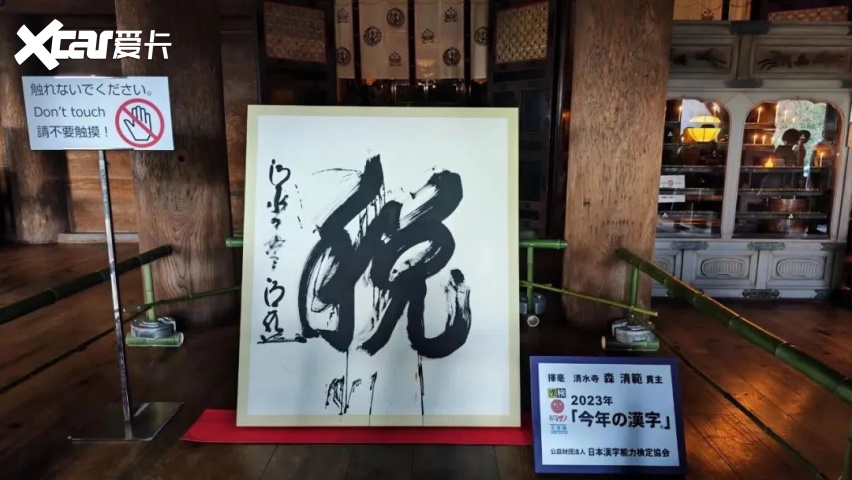 Xcar爱卡
触れないでください。
Don't touch
請不要触摸！
税
揮毫 清水寺 森 清範 貫主
2023年
「今年の漢字」®
公益財団法人 日本漢字能力検定協会